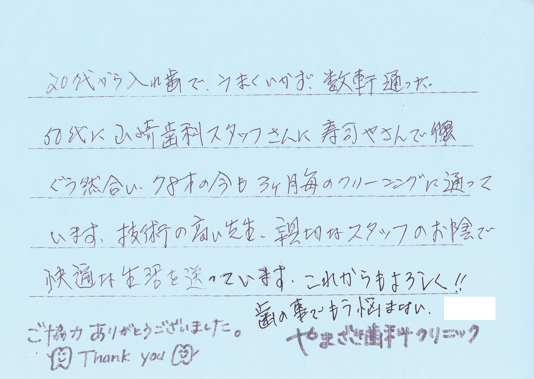 20代から入れ歯で、うまくいかず、数軒通った。
50代に山崎歯科スタッフさんに寿司やさんで
ぐう然合い、78才の今も3ヶ月毎のクリーニングに通って
います。技術の高い先生、親切なスタッフのお陰で
快適な生活を送っています。これからもよろしく!!
歯の事でもう悩まない。
ご協力ありがとうございました。
やまざき歯科クリニック
Thank you